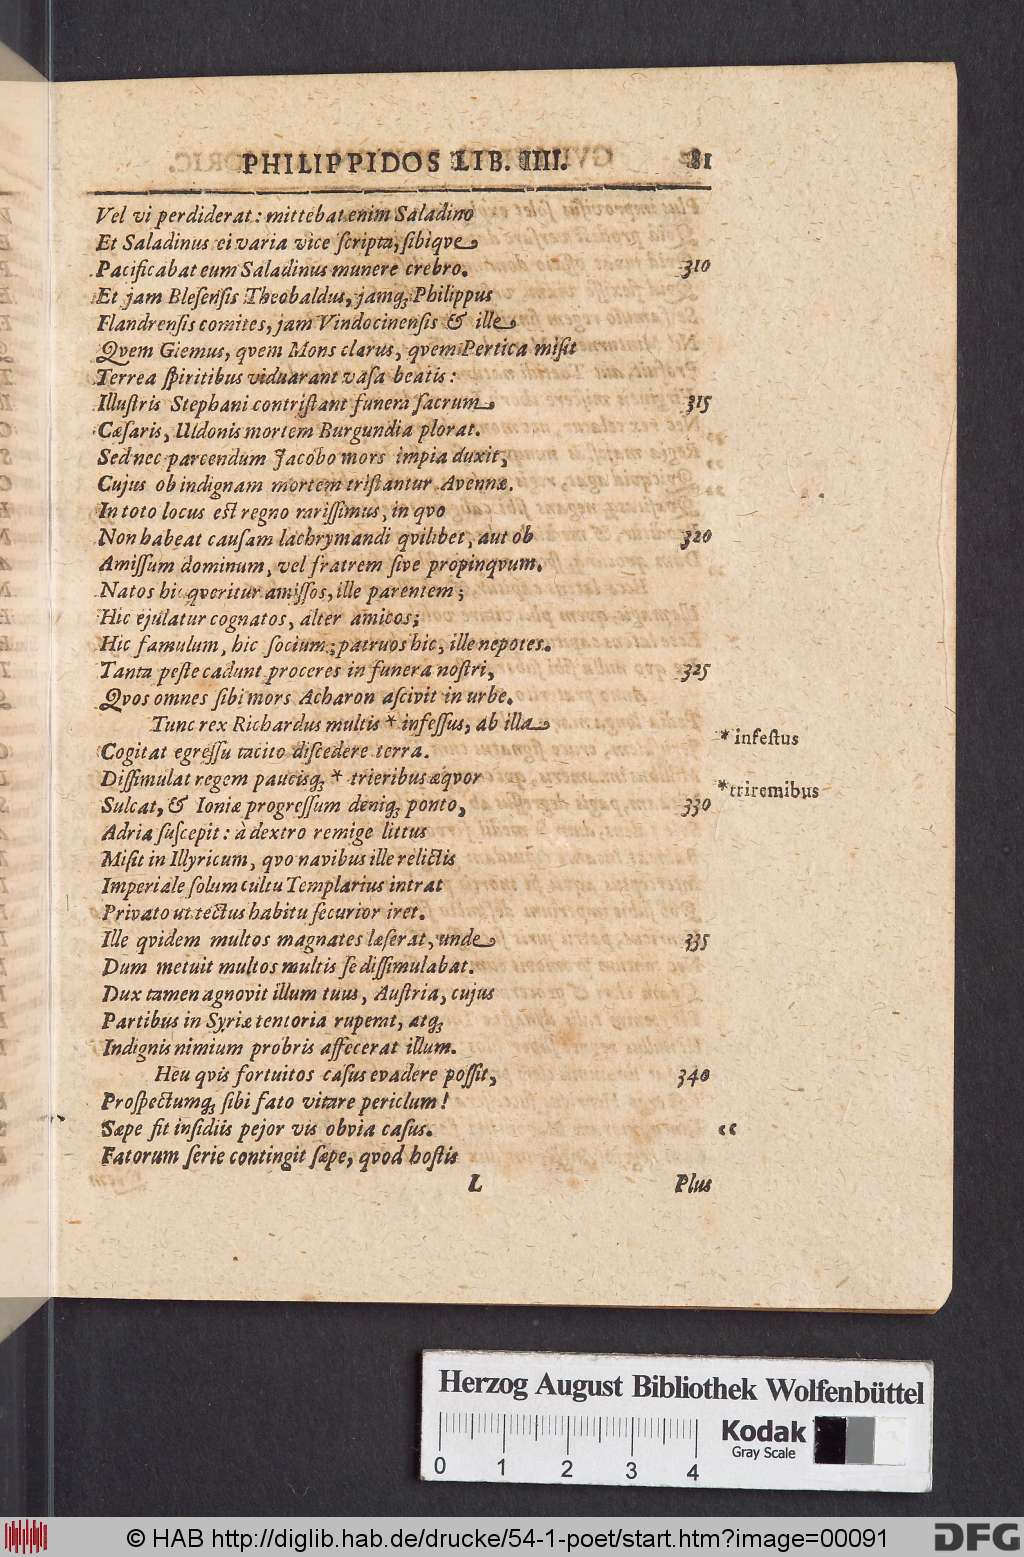 PHILIPPIDOS LIB. IIII. 81
Vel vi perdiderat: mittebat enim Saladino
Et Saladinus ei varia vice ſcripta, ſibiqve
Pacificabat eum Saladinus munere crebro. 310
Et jam Bleſenſis Theobaldus, jamq; Philippus
Flandrenſis comites, jam Vindocinenſis & ille
Qvem Giemus, qvem Mons clarus, qvem Pertica miſit
Terrea ſpiritibus viduarant vaſa beatis:
Illuſtris Stephani contriſtant funera ſacrum 315
Cæſaris, Uldonis mortem Burgundia plorat.
Sed nec parcendum Jacobo mors impia duxit,
Cujus ob indignam mortem triſtantur Avennæ.
In toto locus eſt regno rariſſimus, in qvo
Non habeat cauſam lachrymandi qvilibet, aut ob 320
Amiſſum dominum, vel fratrem ſive propinqvum.
Natos hic qveritur amiſſos, ille parentem;
Hic ejulatur cognatos, alter amicos;
Hic famulum, hic ſocium; patruos hic, ille nepotes.
Tanta peſte cadunt proceres in funera noſtri, 325
Qvos omnes ſibi mors Acharon aſcivit in urbe.
Tunc rex Richardus multis * infeſſus, ab illa
* infeſtus
Cogitat egreſſu tacito diſcedere terra.
Diſſimulat regem paucisq; * trieribus æqvor
*triremibus
Sulcat, & Ioniæ progreſſum deniq; ponto, 330
Adria ſuſcepit: à dextro remige littus
Miſit in Illyricum, qvo navibus ille relictis
Imperiale ſolum cultu Templarius intrat
Privato ut tectus habitu ſecurior iret.
Ille qvidem multos magnates læſerat, unde 335
Dum metuit multos multis ſe diſſimulabat.
Dux tamen agnovit illum tuus, Auſtria, cujus
Partibus in Syriæ tentoria ruperat, atq;
Indignis nimium probris affecerat illum.
Heu qvis fortuitos caſus evadere poſſit, 340
Proſpectumq; ſibi fato vitare periclum!
Sæpe fit inſidiis pejor vis obvia caſus. “
Fatorum ſerie contingit ſæpe, qvod hoſtis
L Plus
Herzog August Bibliothek Wolfenbüttel
0 1 2 3 4
Kodak
Gray Scale
© HAB http://diglib.hab.de/drucke/54-1-poet/start.htm?image=00091
DFG